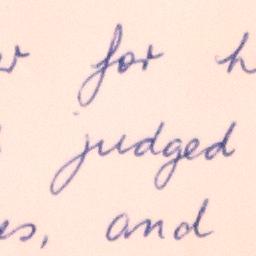 for
judged
and